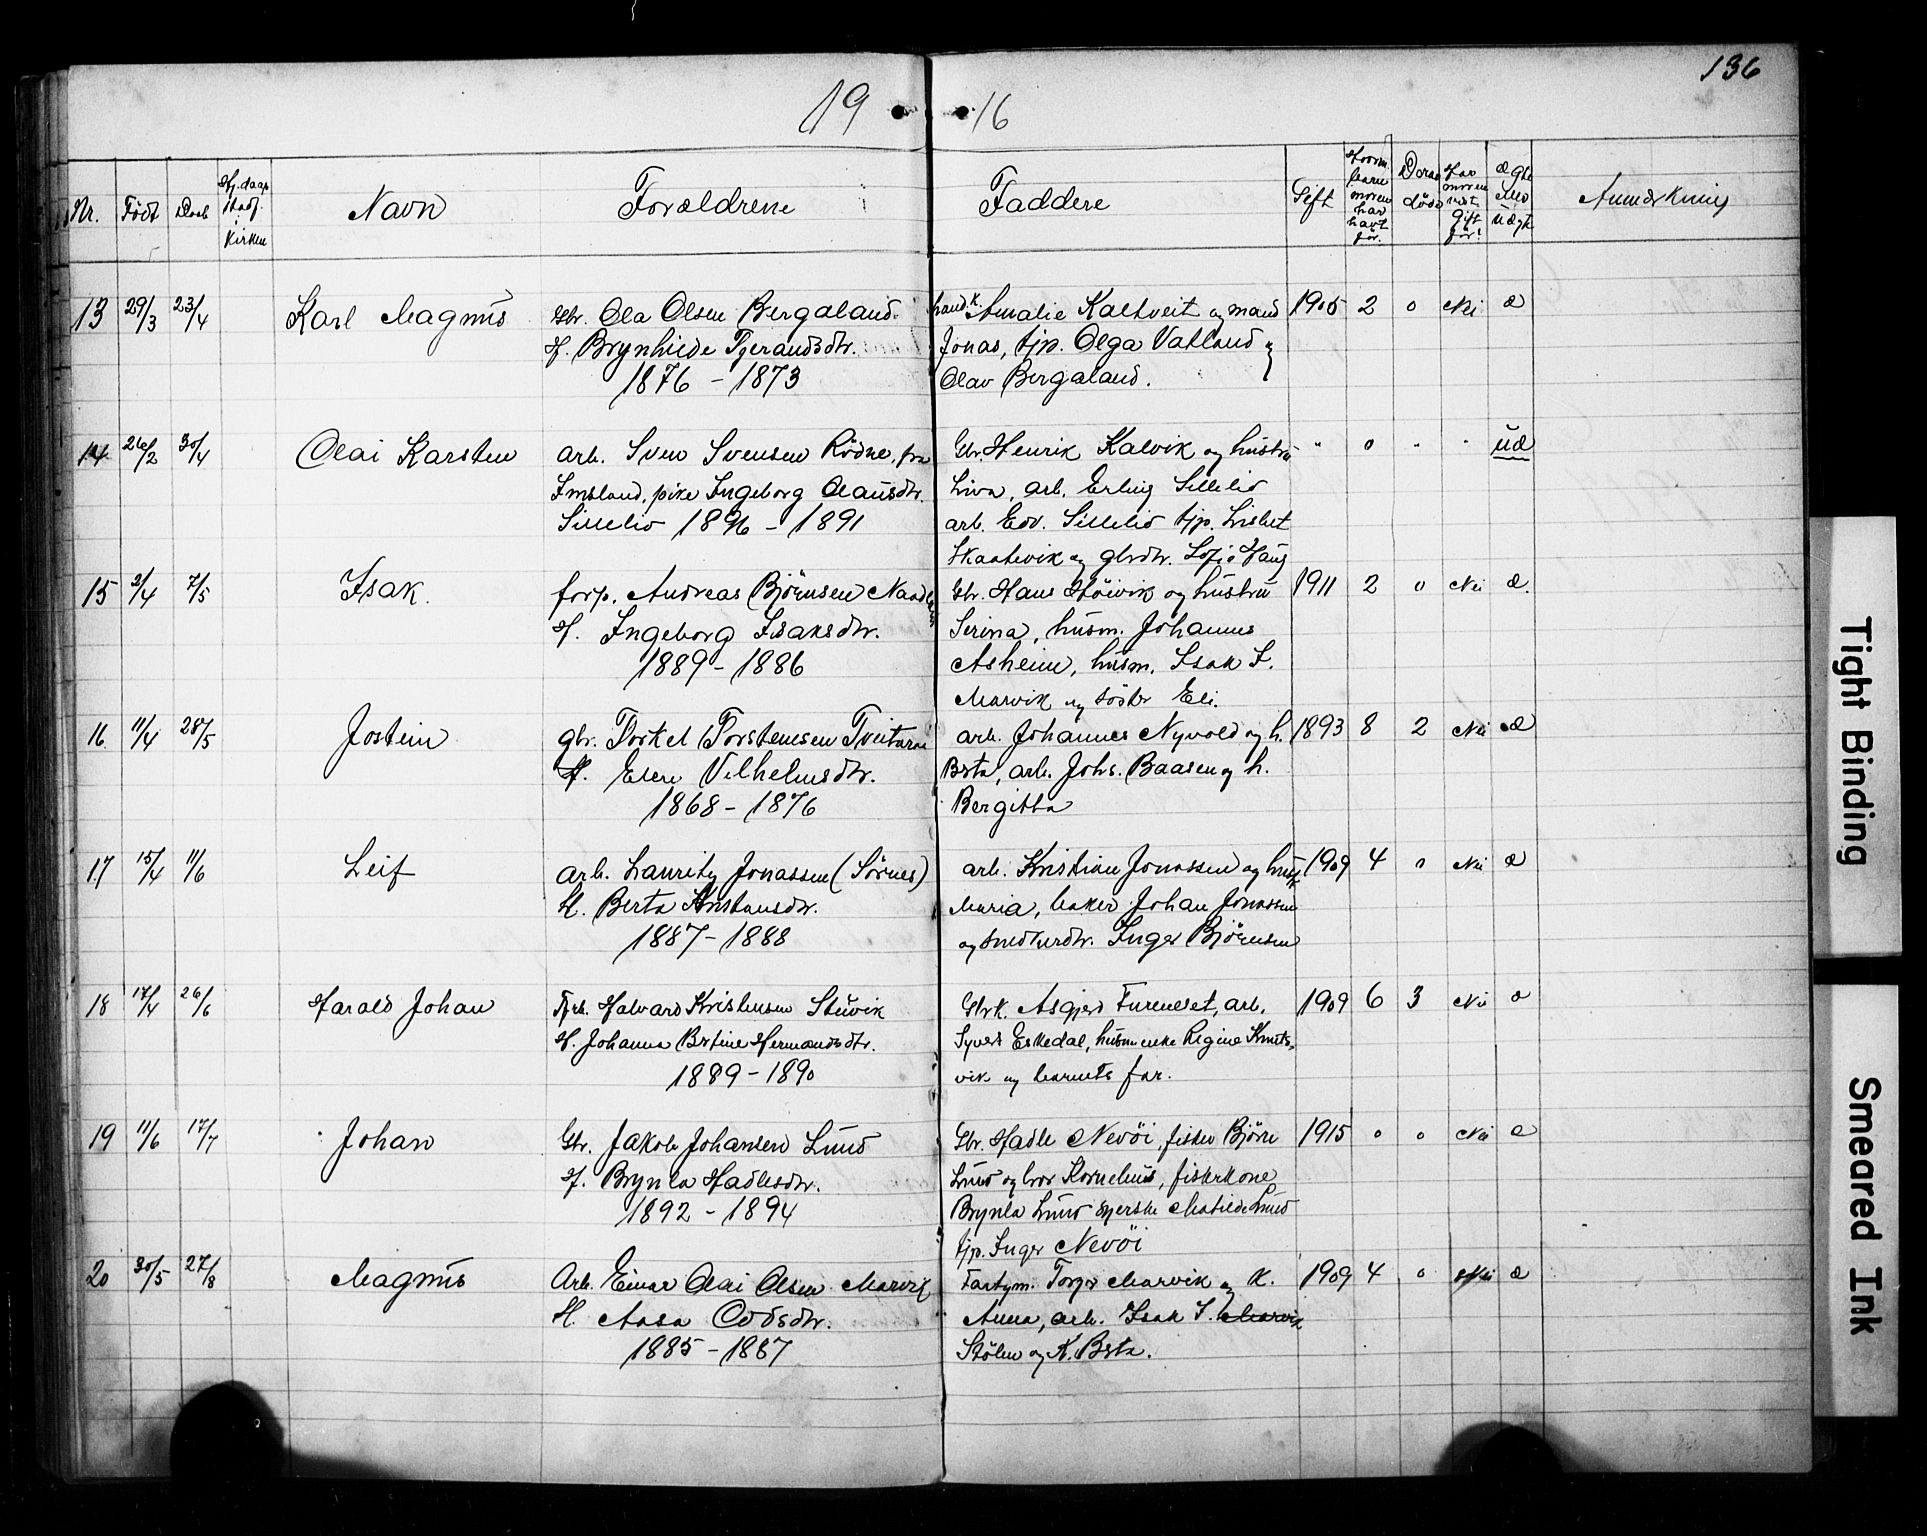 136
19 16
Nr. Födt Döbt Hj.daap stadf. i Kirken Navn Forældrene Faddere Gift Hvorm. barn moren har havt för. Deraf döde Har moren vært gift för? ægte Uægte Anmerkning
13 29/3 23/4 Karl Magnus Gbr. Ola Olsen Bergaland. Amalie Kaltveit og mand 1905 2 0 Nei æ
H. Brynhilde Tjerandsdtr. Jonas, tjp. Olga Vatland og
1876 - 1873 Olav Bergaland.
14 26/2 30/4 Olai Karsten arb. Sven Svensen Rödne, fra Gbr. Henrik Kalvik og hustru " 0 " " uæ
Imsland, pike Ingeborg Olausdtr. Liva, arb. Erling Sillelid
Sillelid 1896 - 1891 arb. Edv. Sillelid tjp. Lisbet
Skaatevik og gbrdtr. Sofie Haug
15 2/4 7/5 Isak. forp. Andreas Björnsen Gbr. Hans Stöivik og hustru 1911 2 0 Nei æ.
H. Ingeborg Isaksdtr. Serina, husm. Johannes
1889 - 1886 Asheim, husm. Isak I.
Marvik og söster Eli.
16 11/4 28/5 Jostein gbr. Torkel Torstensen Tveitaraa arb. Johannes Nyvold og h. 1893 8 2 Nei æ
H. Elen Vilhelmsdtr. Brta, arb. Johs. Baasen og h.
1868 - 1876 Bergitta
17 15/4 11/6 Leif arb. Lauritz Jonassen (Sörnes) arb. Kristian Jonassen og hustr 1909 4 0 Nei æ
H. Berta Kristansdtr. Maria, baker Johan Jonassen
1887 - 1888 og smedturdtr. Inger Björnsen
18 17/4 26/6 Harald Johan Fjrb. Halvard Kristensen Stuvik Gbrk. Asgjerd Fureneset, arb. 1909 6 3 Nei æ
H. Johanna Brtine Hermandsdtr. Syvert Eskedal, husm enke Regine Knuts-
1889 - 1890 vik og barnets far.
19 11/6 17/7 Johan Gbr. Jakob Johansen Lund Gbr. Hadle Nevöi, fisker Björn 1915 0 0 Nei æ
H. Brynla Hadlesdtr. Lund og bror Kornelius, fiskerkone
1892 - 1894 Brynla Lund syerske Matilde Lund
tjp. Inger Nevöi
20 30/5 27/8 Magnus Arb. Einar Olai Olsen Marvik Fartym. Torger Marvik og K. 1909 4 0 Nei æ
H. Aasa Oddsdtr. Anna, arb. Isak I. Marvik
1885 - 1887 Stölen og K. Brta.
Tight Binding
Smeared Ink